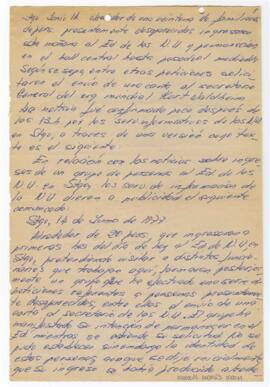 Stgo. Junio 14 alrededor de una veintena de familiares
de pers. presuntamente desaparecidas ingresaron
esta mañana al Ed de las N.U y permanecían
en el hall central hasta pasado el mediodía
Según se supo, entre otras peticiones solici
taron el envío de una carta al secretario
General del org. mundial Kurt Waldheim.
La noticia fue confirmada poco después de
las 13 h por los serv. informativos de las N.U
en Stgo, a través de una versión cuyo tex-
to es el siguiente:
En relación con las noticias sobre ingre
so de un grupo de personas al Ed. de las
N.U. en Stgo, los serv. de información de
la N.U dieron a publicidad el siguiente
comunicado:
Stgo, 14 de Junio de 1977
Alrededor de 20 pers, que ingresaron a
primeras hrs del día de hoy al Ed de N.U, en
Stgo, pretendiendo visitar a distintos funcio-
narios que trabajan aquí, formaron posterior
mente un grupo que ha efectuado una serie de
peticiones referentes a personas presuntamen
te desaparecidas, entre ellas el envío de una
carta al secretario de las N.U. El grupo ha
manifestado su intención de permanecer en el
Ed. mientras se atiende su solicitud. No se
pudo establecer la identidad de
estas personas aunque se dijo inicialmente
que su ingreso se había producido